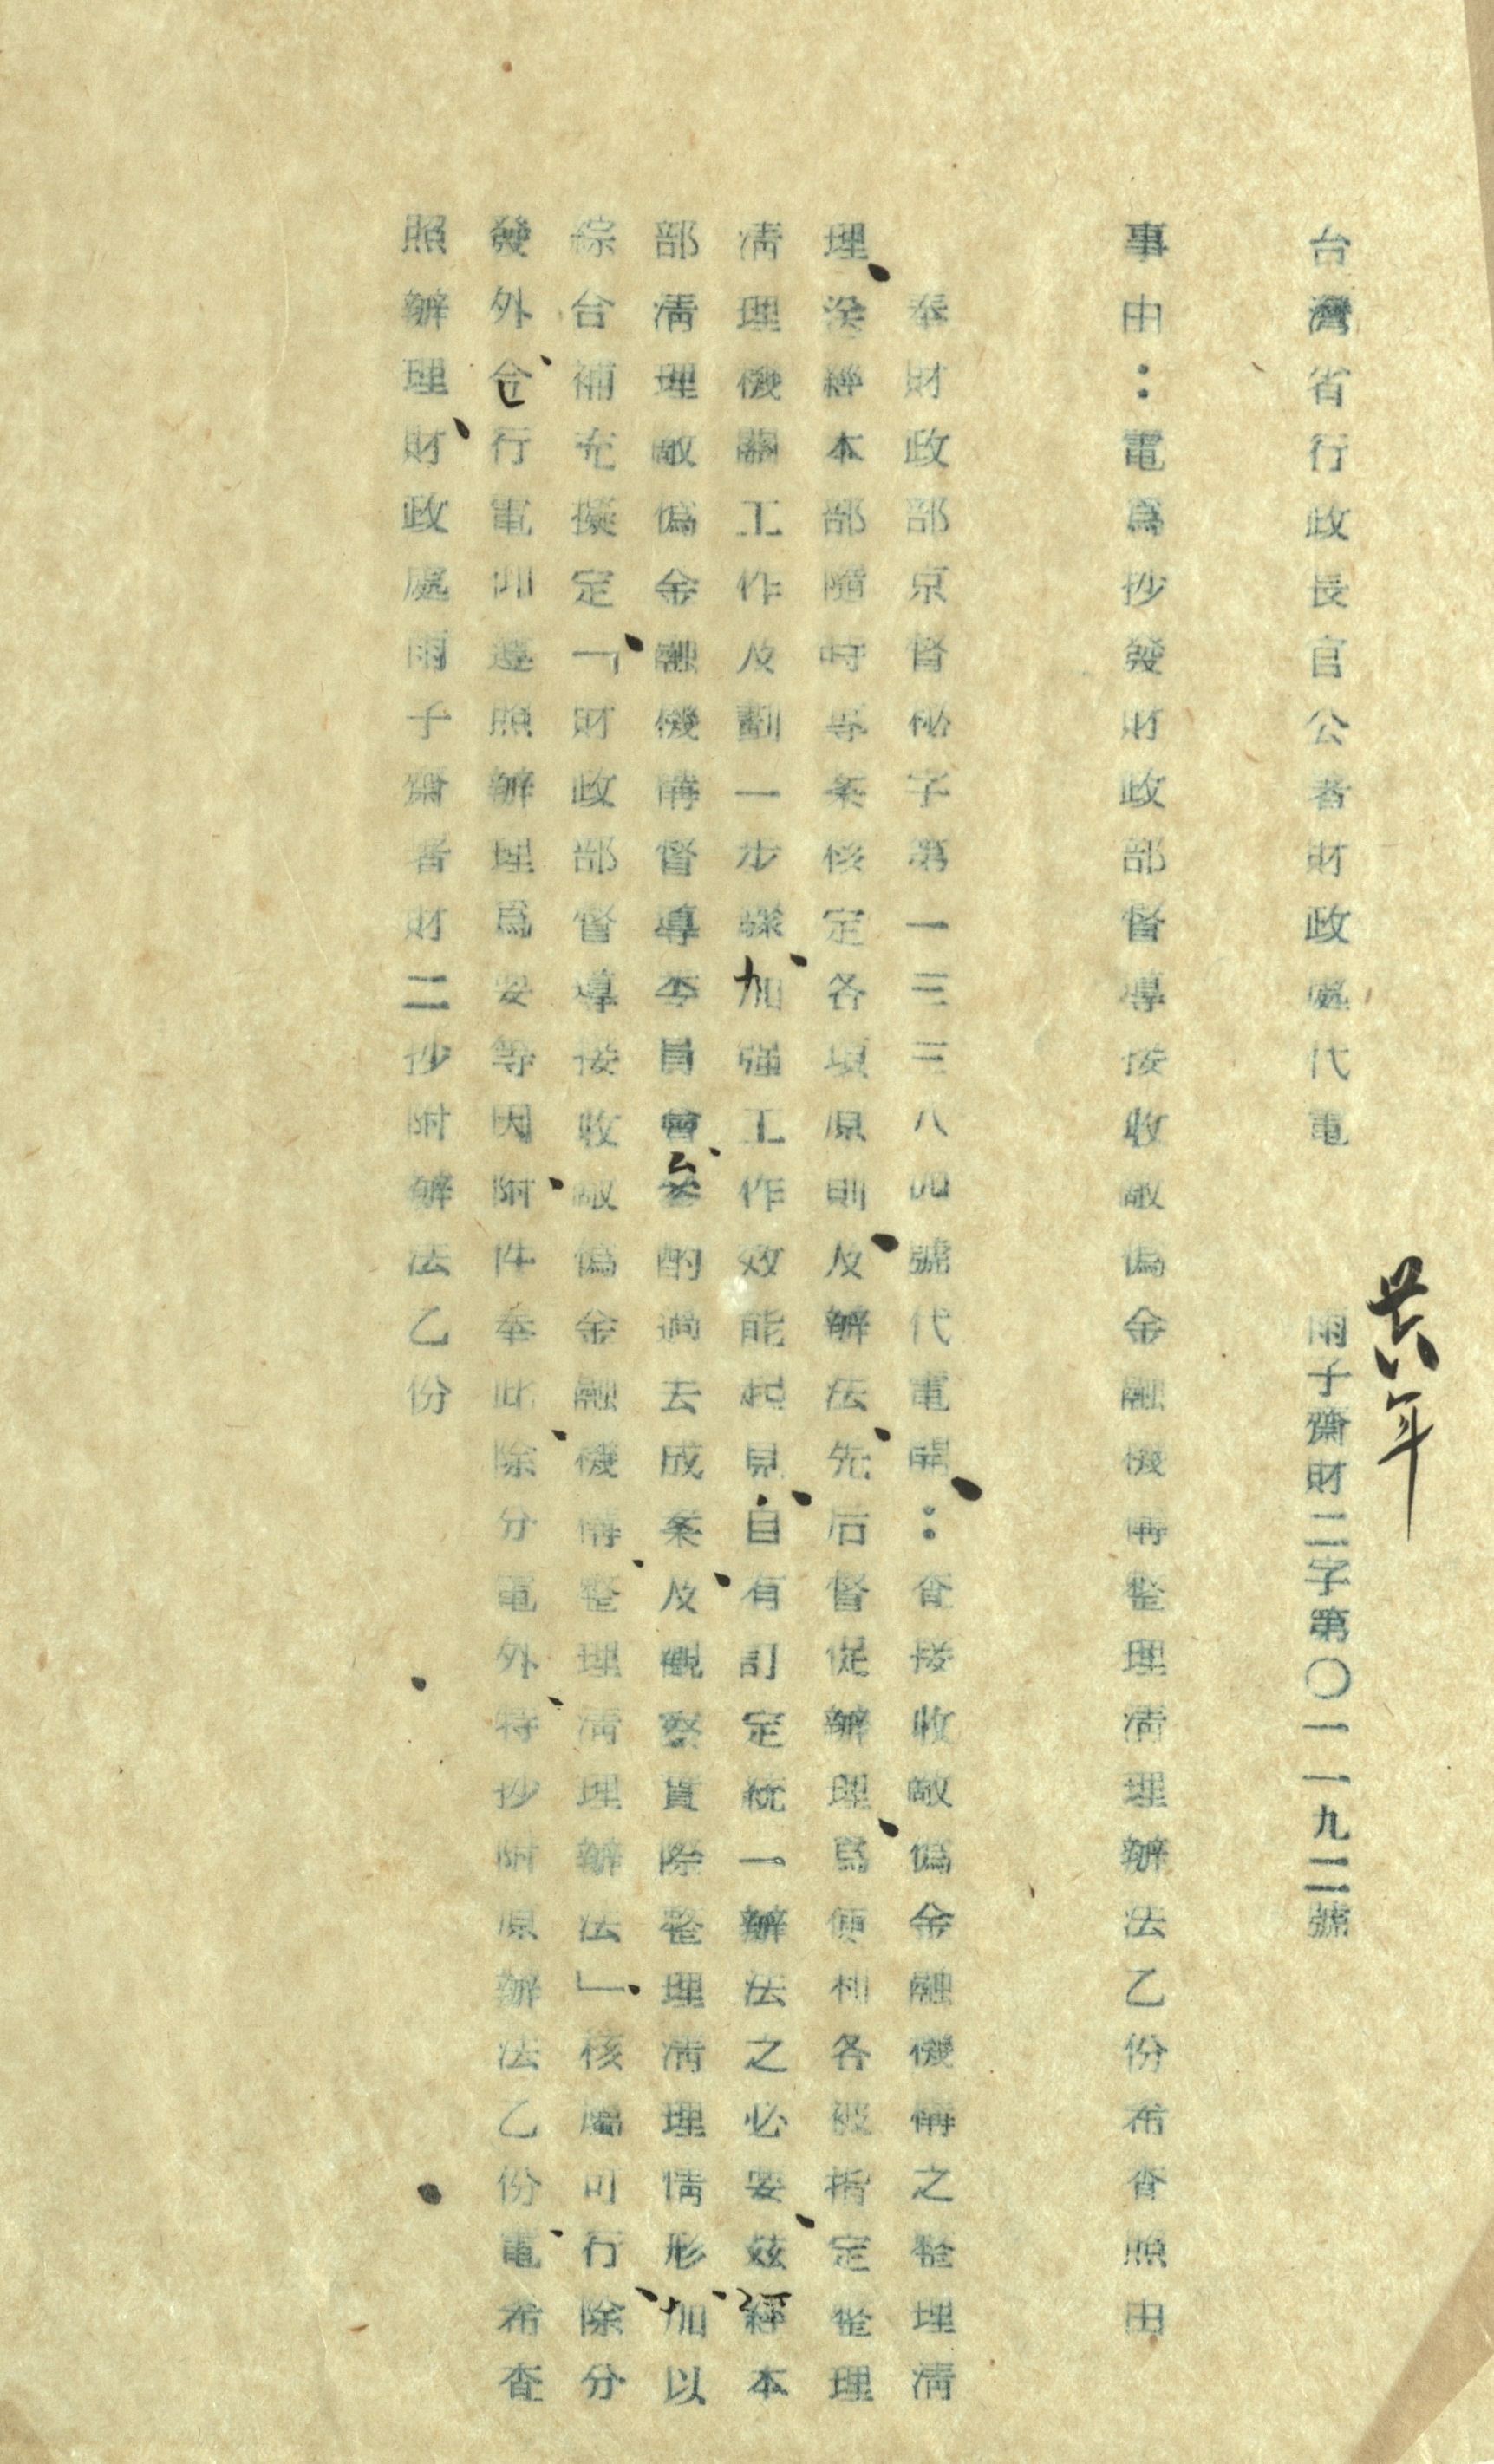 台灣省行政長官公署財政處代電 雨子齋財二字第〇一一九二號
卅六年
事由：電爲抄發財政部督導接收敵僞金融機構整理清理辦法乙份布查照由
奉財政部京督秘字第一三三八四號代電開：查接收敵僞金融機構之整理清
理、業經本部隨時專案核定各項原則及辦法、先后督促辦理、爲便利各被指定整理
清理機關工作及劃一步驟、加強工作效能起見、自有訂定統一辦法之必要、茲經本
部清理敵僞金融機構督導委員會、參酌過去成案、及觀察實際整理清理情形、加以
綜合補充、擬定「財政部督導接收敵僞金融機構整理清理辦法」、核屬可行、除分
發外、合行電仰遵照辦理爲要等因、附件奉此、除分電外、特抄附原辦法乙份、電布查
照辦理、財政處雨子齋署財二、抄附辦法乙份、